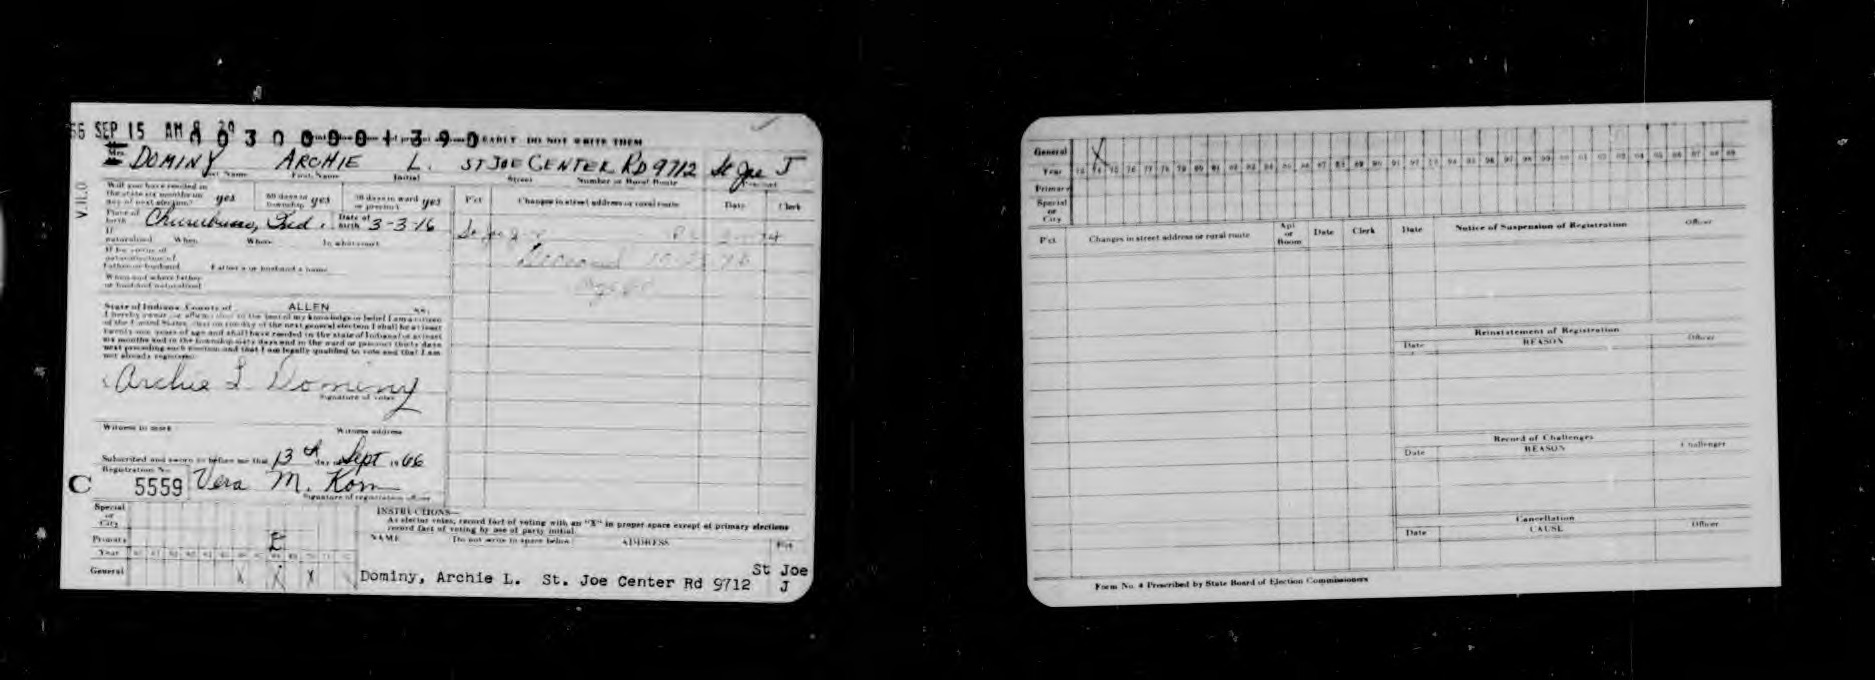 66 SEP 15 AM 8 29
EARLY DO NOT WRITE THEM
Mrs. DOMINY ARCHIE L. ST JOE CENTER RD 9712 St Joe J
First Name Initial Street Number or Rural Route Precinct
V.H.O.
Will you have resided in the state six months on day of next election? yes 60 days in township yes 30 days in ward or precinct yes
Place of birth Churubusco, Ind. Date of birth 3-3-16
If naturalized When Where In what court
If by virtue of naturalization of Father or husband Father's or husband's name
When and where father or husband naturalized
Pct Changes in street address or rural route Date Clerk
Deceased
State of Indiana, County of ALLEN SS:
I hereby swear or affirm that to the best of my knowledge or belief I am a citizen
of the United States, that on the day of the next general election I shall be at least
twenty-one years of age and shall have resided in the state of Indiana for at least
six months and in the township sixty days and in the ward or precinct thirty days
next preceding such election and that I am legally qualified to vote and that I am
not already registered.
Archie L Dominy
Signature of voter
Witness to mark Witness address
Subscribed and sworn to before me this 13th day of Sept 1966
Registration No.
C 5559 Vera M. Korn
Signature of registration officer
Special or City
Primary
Year
General X X X
INSTRUCTIONS—
As elector votes, record fact of voting with an "X" in proper space except at primary elections
record fact of voting by use of party initial.
NAME Do not write in space below ADDRESS Pct
Dominy, Archie L. St. Joe Center Rd 9712 St Joe J
General X
Year 73 74 75 76 77 78 79 80 81 82 83 84 85 86 87 88 89 90 91 92 93 94 95 96 97 98 99 00 01 02 03 04 05 06 07 08 09
Primary
Special or City
Pct Changes in street address or rural route Apt or Room Date Clerk
Date Notice of Suspension of Registration Officer
Reinstatement of Registration
Date REASON Officer
Record of Challenges
Date REASON Challenger
Cancellation
Date CAUSE Officer
Form No. 4 Prescribed by State Board of Election Commissioners